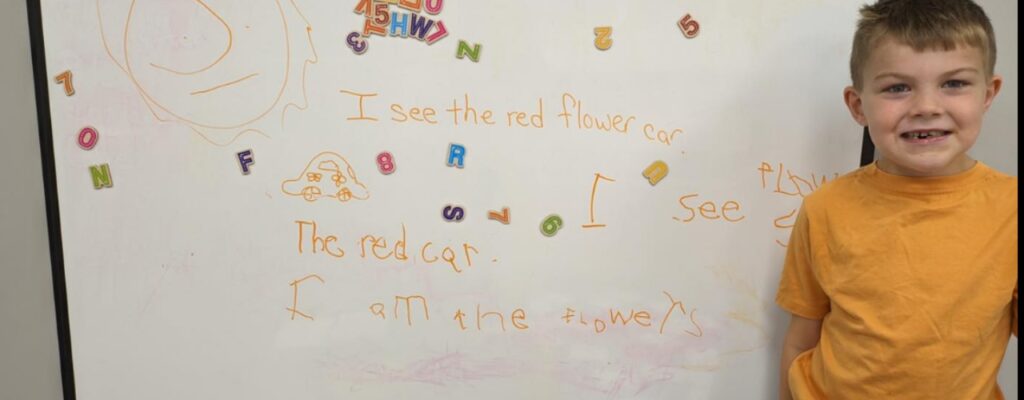 5HW
3
N
2
5
7
0
N
I see the red flower car.
F
8
R
I see
The red car.
S
7
6
I am the flowers